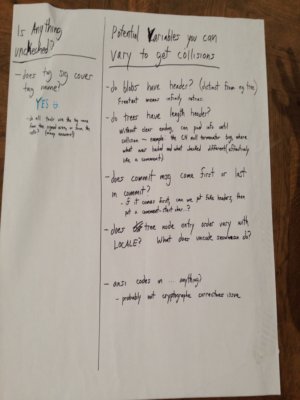 Is Anything
unchecked?
- does tag sig cover
tag name?
YES
- do all tools use the tag name
from the signed area, or from the
refs? (many answers!)
Potential Variables you can
vary to get collisions
- do blobs have header? (distinct from eg tree)
Freetext means infinity retries
- do trees have length header?
Without clear ending, can pad info until
collision – example the CN null terminator bug, where
what was hashed and what checked different (effectively
like a comment)
- does commit msg come first or last
in commit?
- if it comes first, can we put fake headers, then
put a comment-start char..?
- does tree node entry order vary with
LOCALE? What does unicode snowman do?
- ansi codes in ... anything?
- probably not cryptographic correctness issue